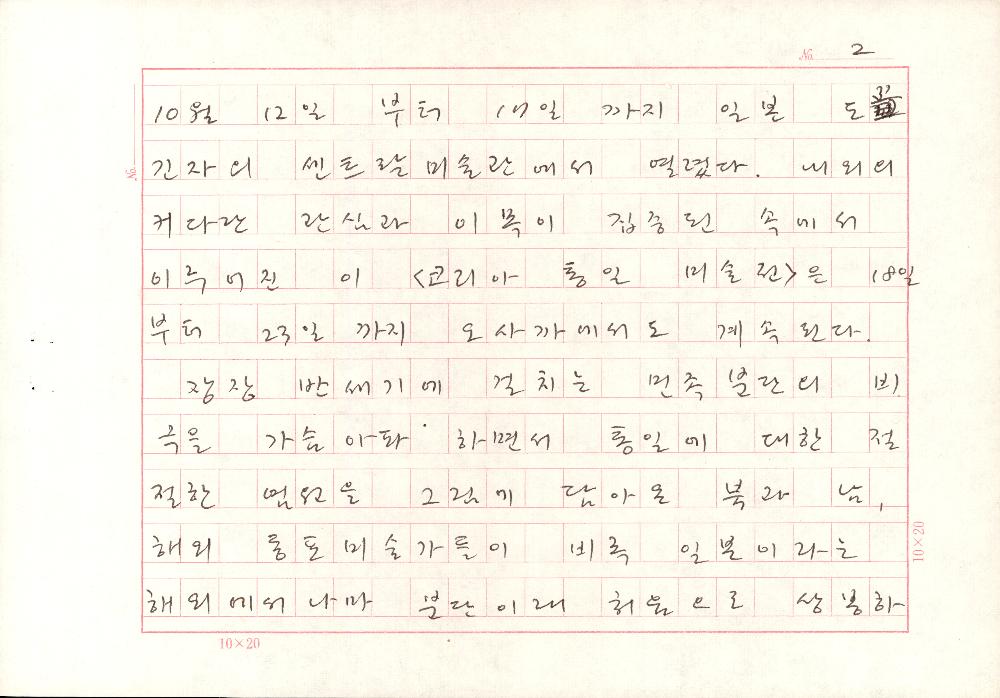 No. 2
10월 12일 부터 17일 까지 일본 도쿄
긴자의 센트랄미술관에서 열렸다. 내외의
커다란 관심과 이목이 집중된 속에서
이루어진 이 <코리아 통일 미술전>은 18일
부터 23일 까지 오사까에서도 계속된다.
장장 반세기에 걸치는 민족분단의 비
극을 가슴아파 하면서 통일에 대한 절
절한 염원을 그림에 담아온 북과 남,
해외 동포미술가들이 비록 일본이라는
해외에서나마 분단이래 처음으로 상봉하
No.
10×20
10×20